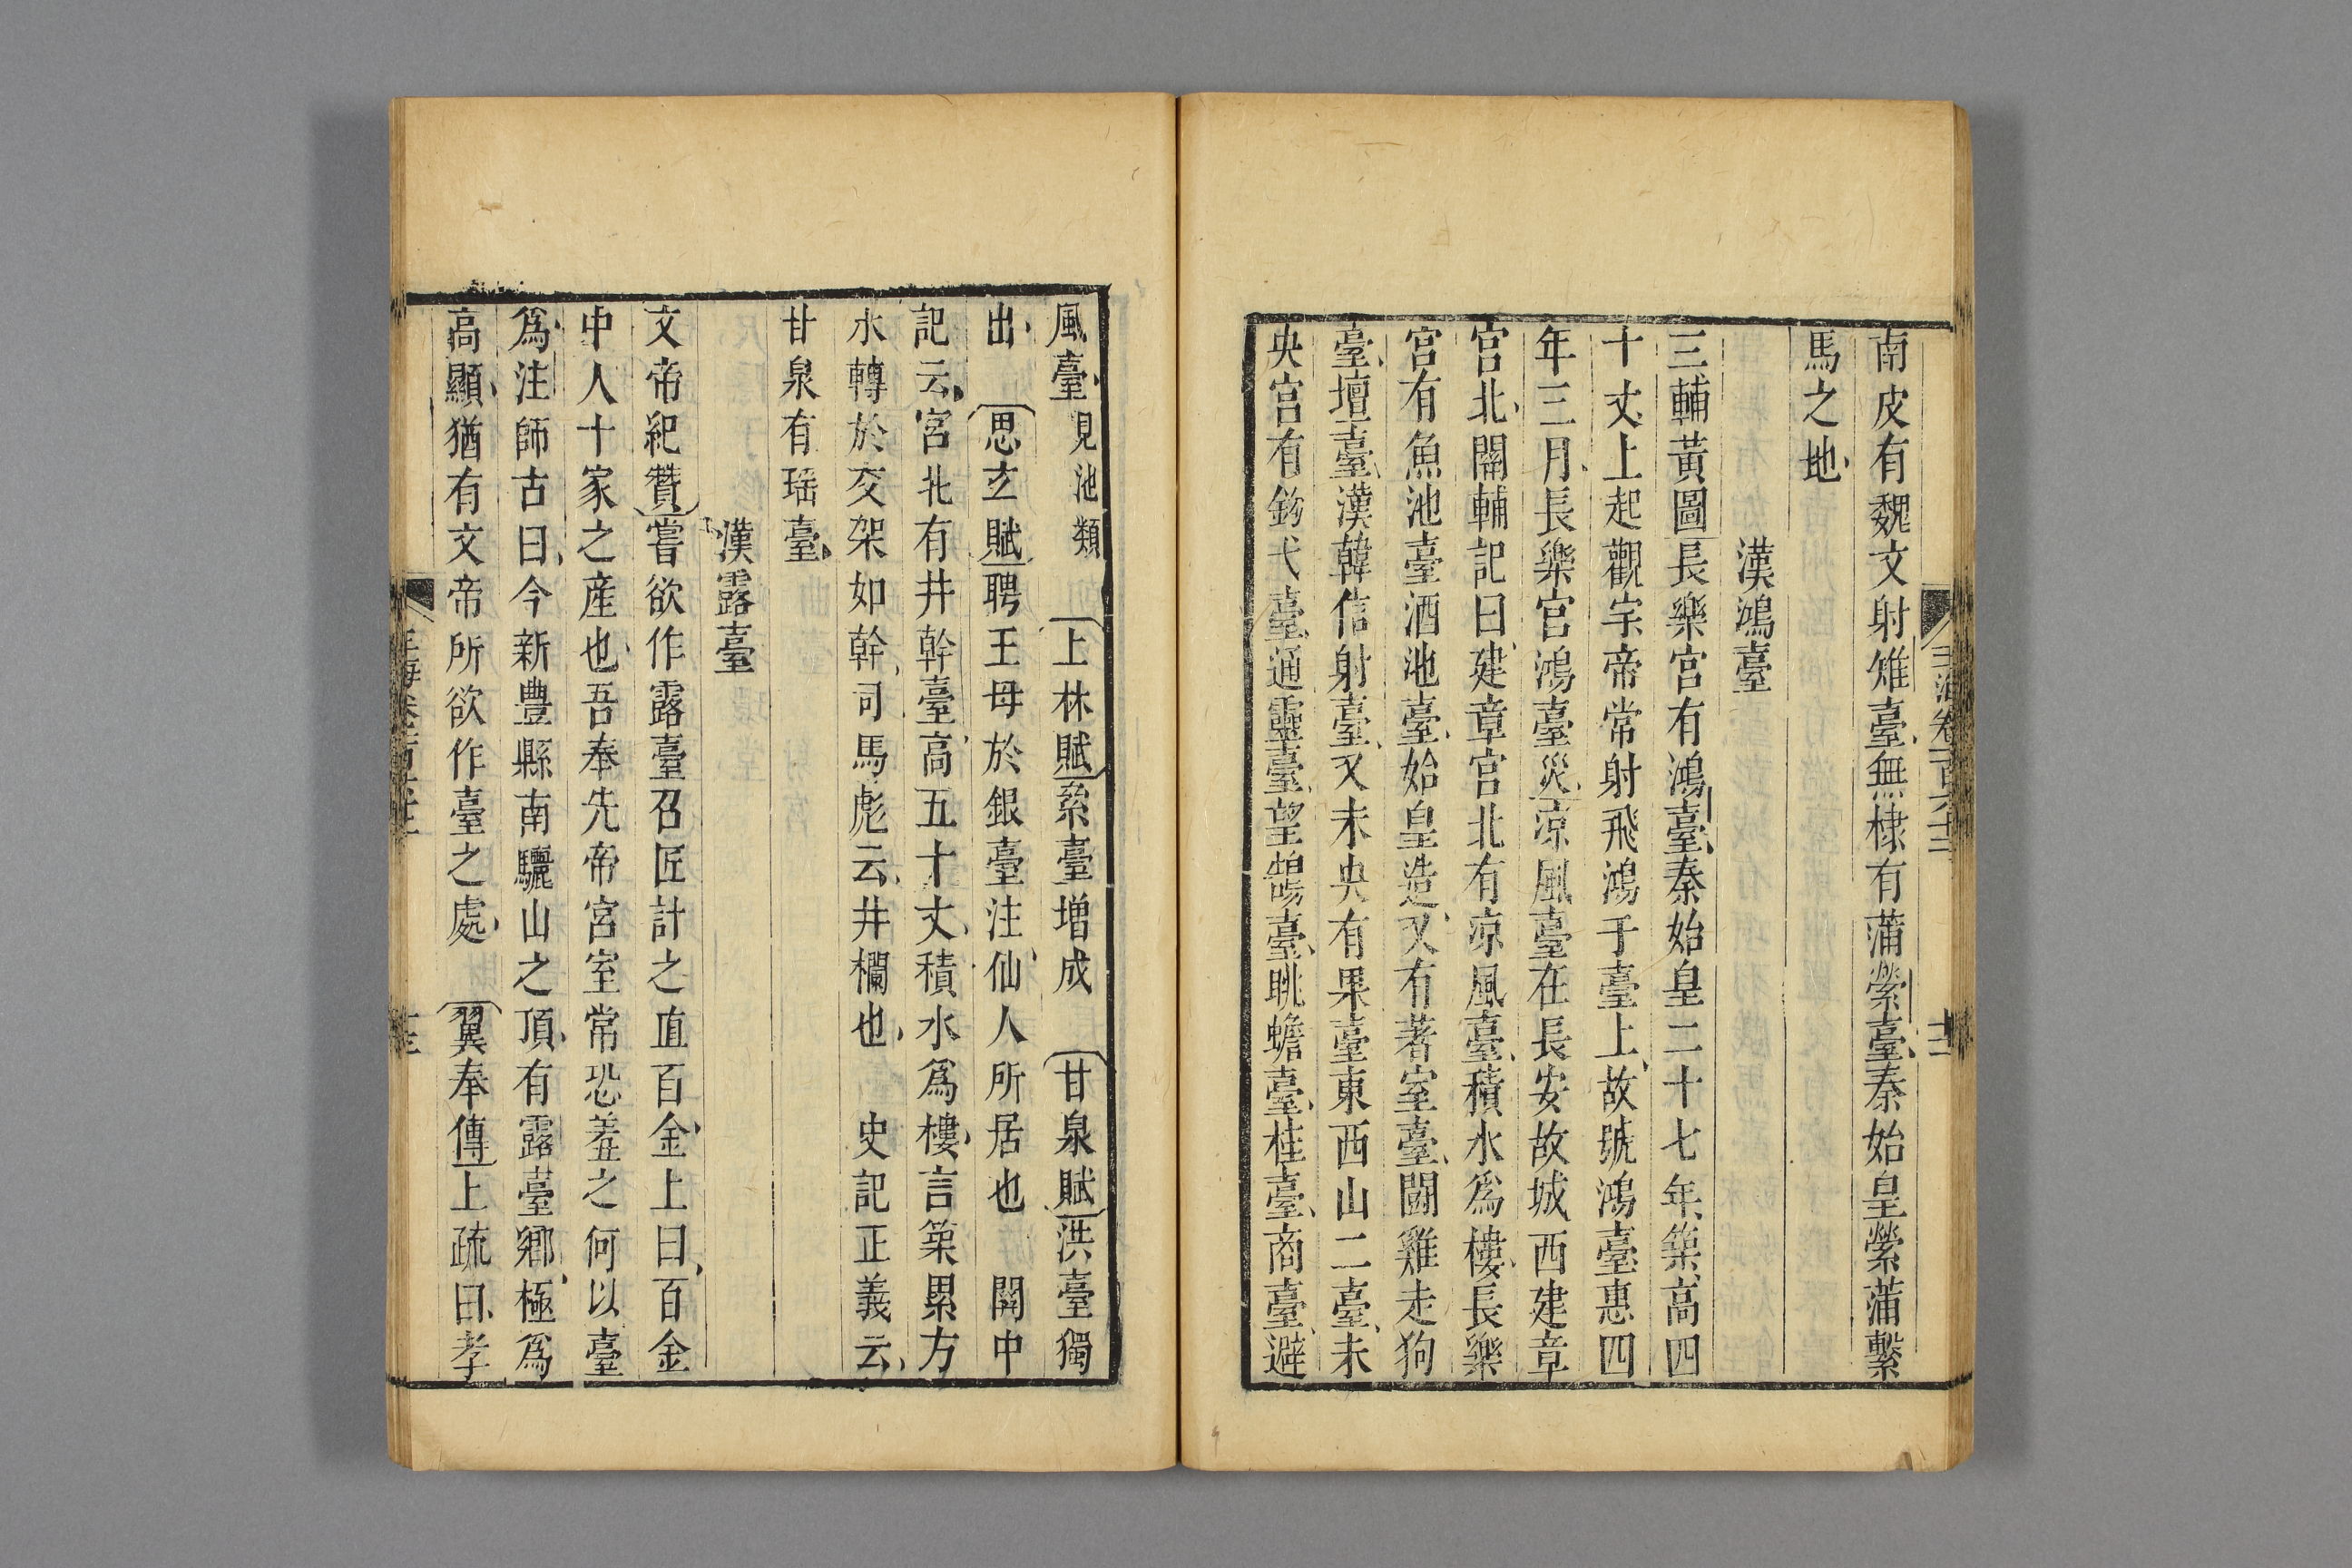 南皮有魏文射雉臺無棣有蒲縈臺秦始皇縈蒲繫
馬之地
漢鴻臺
三輔黃圖長樂宮有鴻臺秦始皇二十七年築高四
十丈上起觀宇帝常射飛鴻于臺上故號鴻臺惠四
年三月長樂宮鴻臺災涼風臺在長安故城西建章
宮北關輔記曰建章宮北有涼風臺積水為樓長樂
宮有魚池臺酒池臺始皇造又有著室臺鬭雞走狗
臺壇臺漢韓信射臺又未央有果臺東西山二臺未
央宮有鈎弋臺通靈臺望鵠臺眺蟾臺桂臺商臺避
風臺見池類 上林賦絫臺增成 甘泉賦洪臺獨
出 思玄賦聘王母於銀臺注仙人所居也 關中
記云宮北有井幹臺高五十丈積水為樓言築累方
木轉於交架如幹司馬彪云井欄也 史記正義云
甘泉有瑤臺
漢露臺
文帝紀贊嘗欲作露臺召匠計之直百金上曰百金
中人十家之產也吾奉先帝宮室常恐羞之何以臺
為注師古曰今新豐縣南驪山之頂有露臺鄉極為
高顯猶有文帝所欲作臺之處 翼奉傳上疏曰孝
玉海卷一百六十二
十二